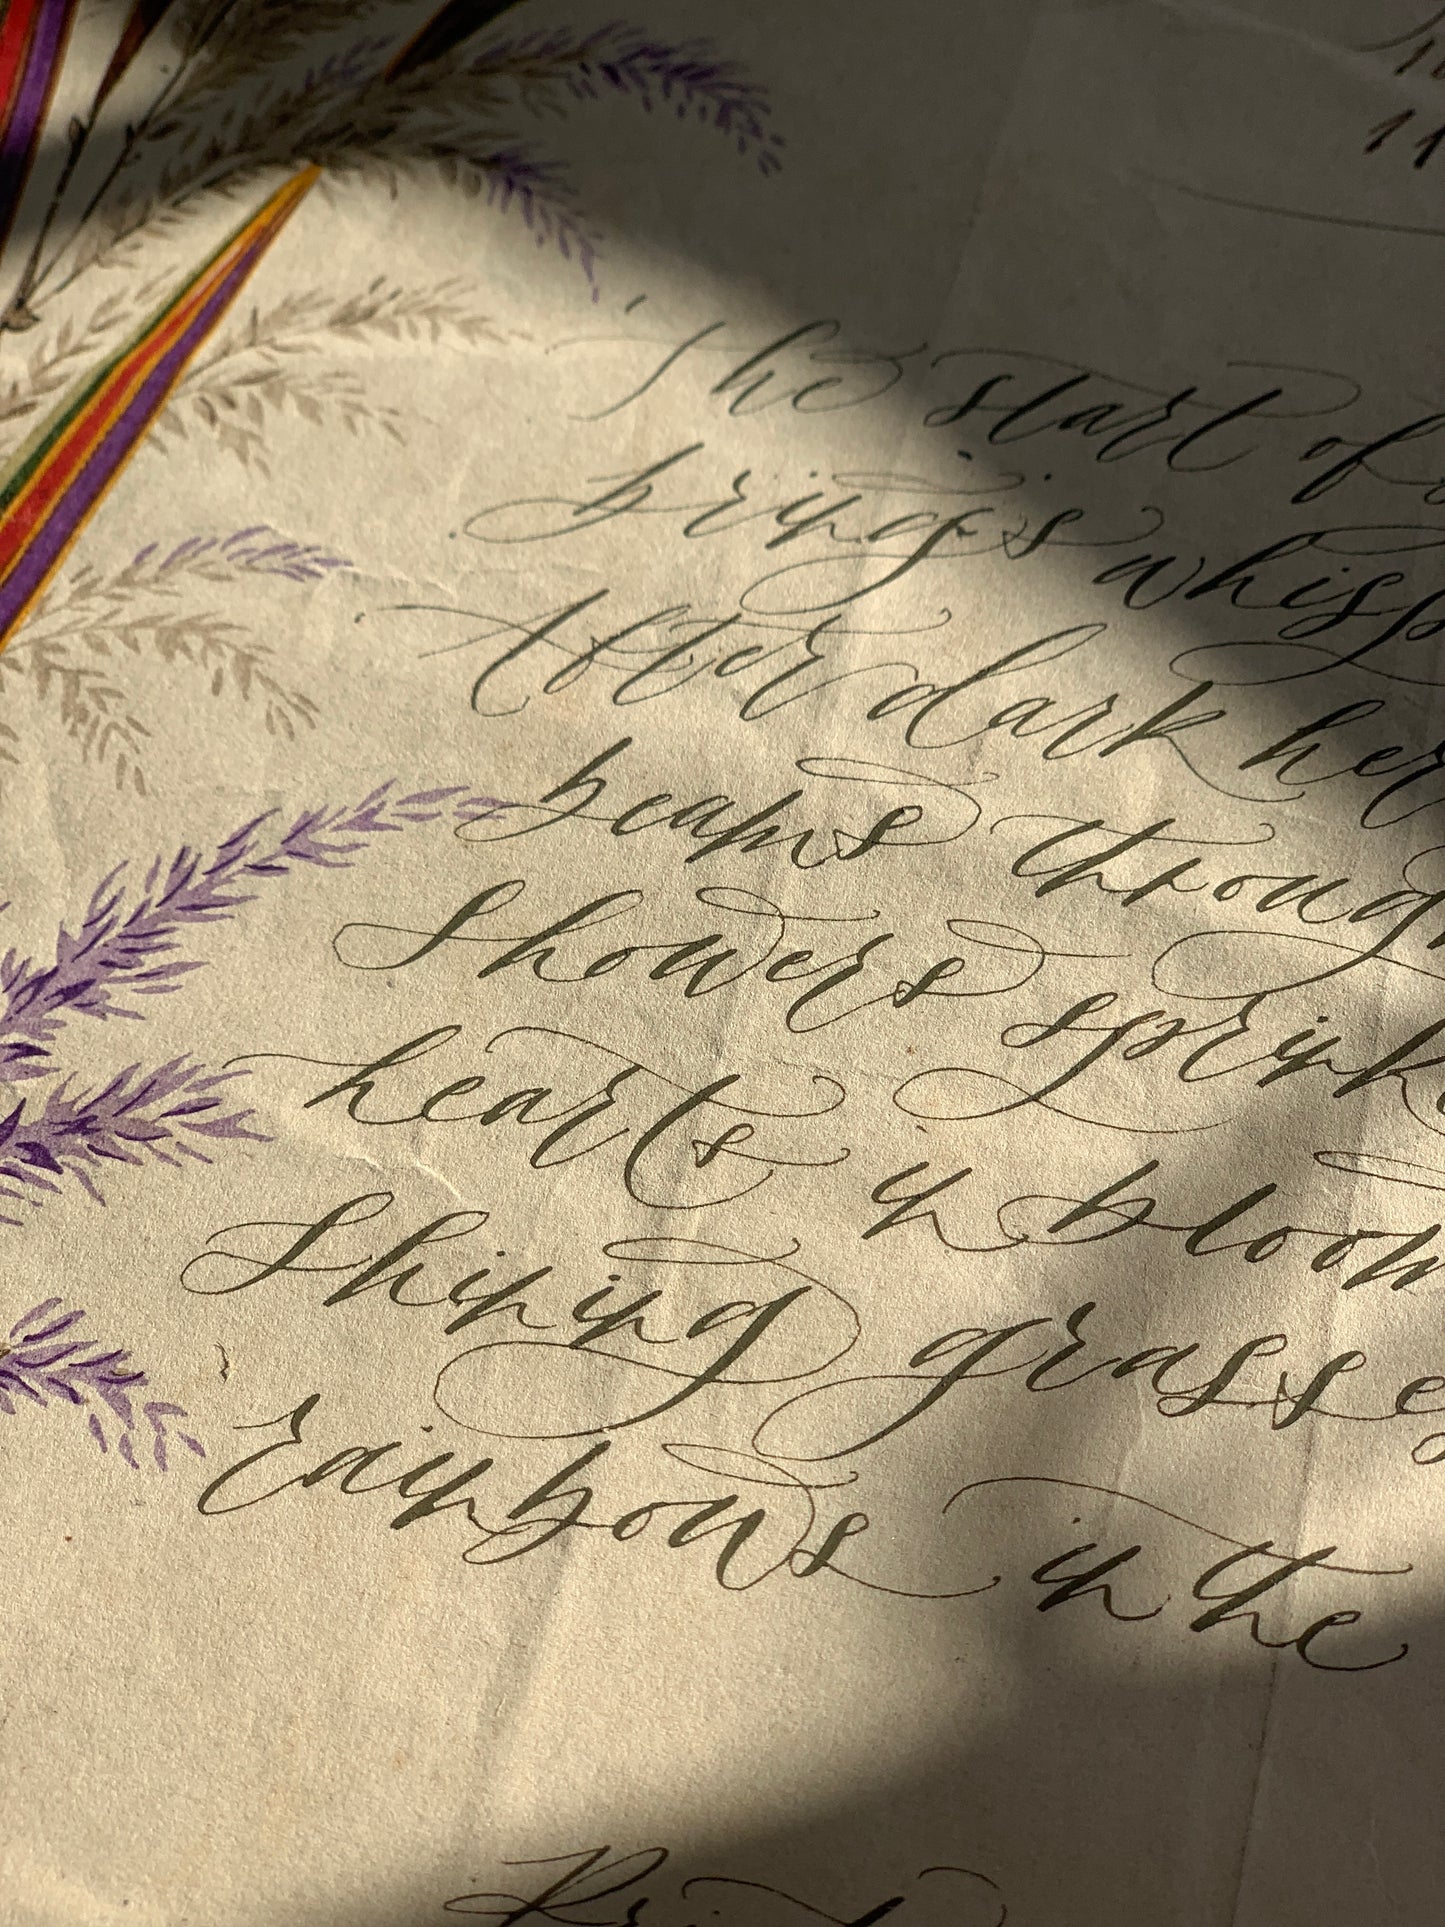 The start of
brings whisp
After dark her
beams throug
Showers sprink
hearts in bloom
Shining grasse
rainbows in the